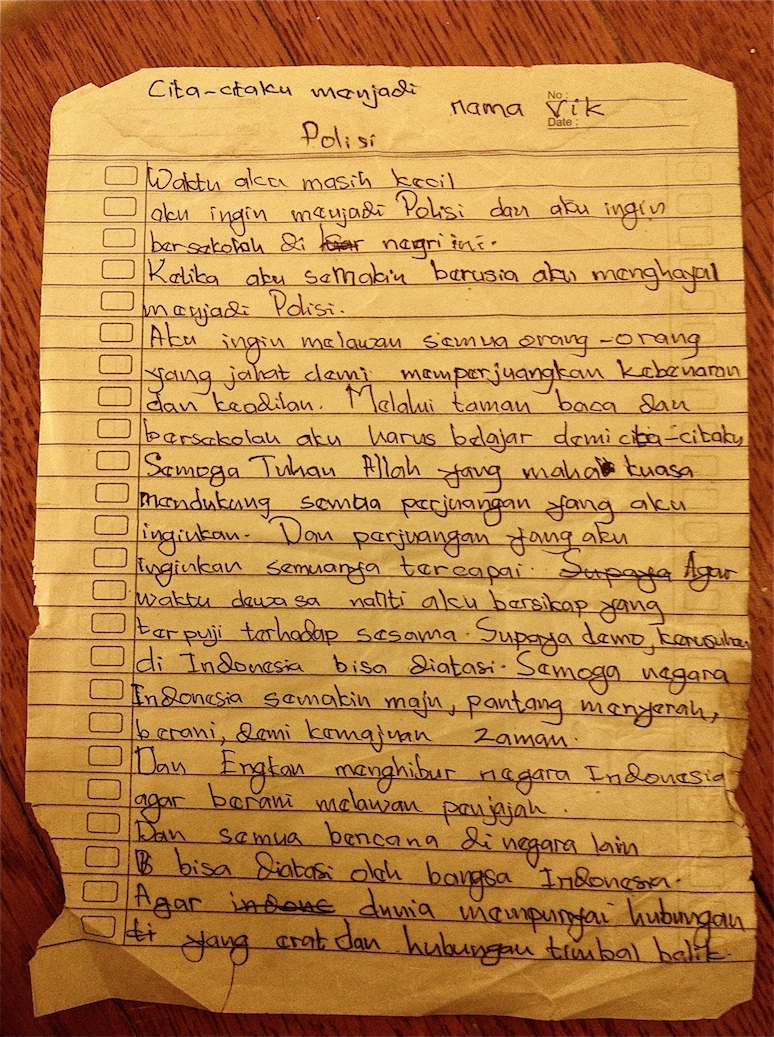 Cita-citaku menjadi
nama Vik
No :
Date :
Polisi
Waktu aku masih kecil
aku ingin menjadi Polisi dan aku ingin
bersekolah di luar negri ini.
Ketika aku semakin berusia aku menghayal
menjadi Polisi.
Aku ingin melawan semua orang-orang
yang jahat demi memperjuangkan kebenaran
dan keadilan. Melalui taman baca dan
bersekolah aku harus belajar demi cita-citaku
Semoga Tuhan Allah yang maha kuasa
mendukung semua perjuangan yang aku
inginkan. Dan perjuangan yang aku
inginkan semuanya tercapai. Supaya Agar
waktu dewasa nanti aku bersikap yang
terpuji terhadap sesama. Supaya demo, kerusuhan
di Indonesia bisa diatasi. Semoga negara
Indonesia semakin maju, pantang menyerah,
berani, demi kemajuan zaman.
Dan Engkau menghibur negara Indonesia
agar berani melawan penjajah.
Dan semua bencana di negara lain
B bisa diatasi oleh bangsa Indonesia.
Agar indone dunia mempunyai hubungan
ti yang erat dan hubungan timbal balik.